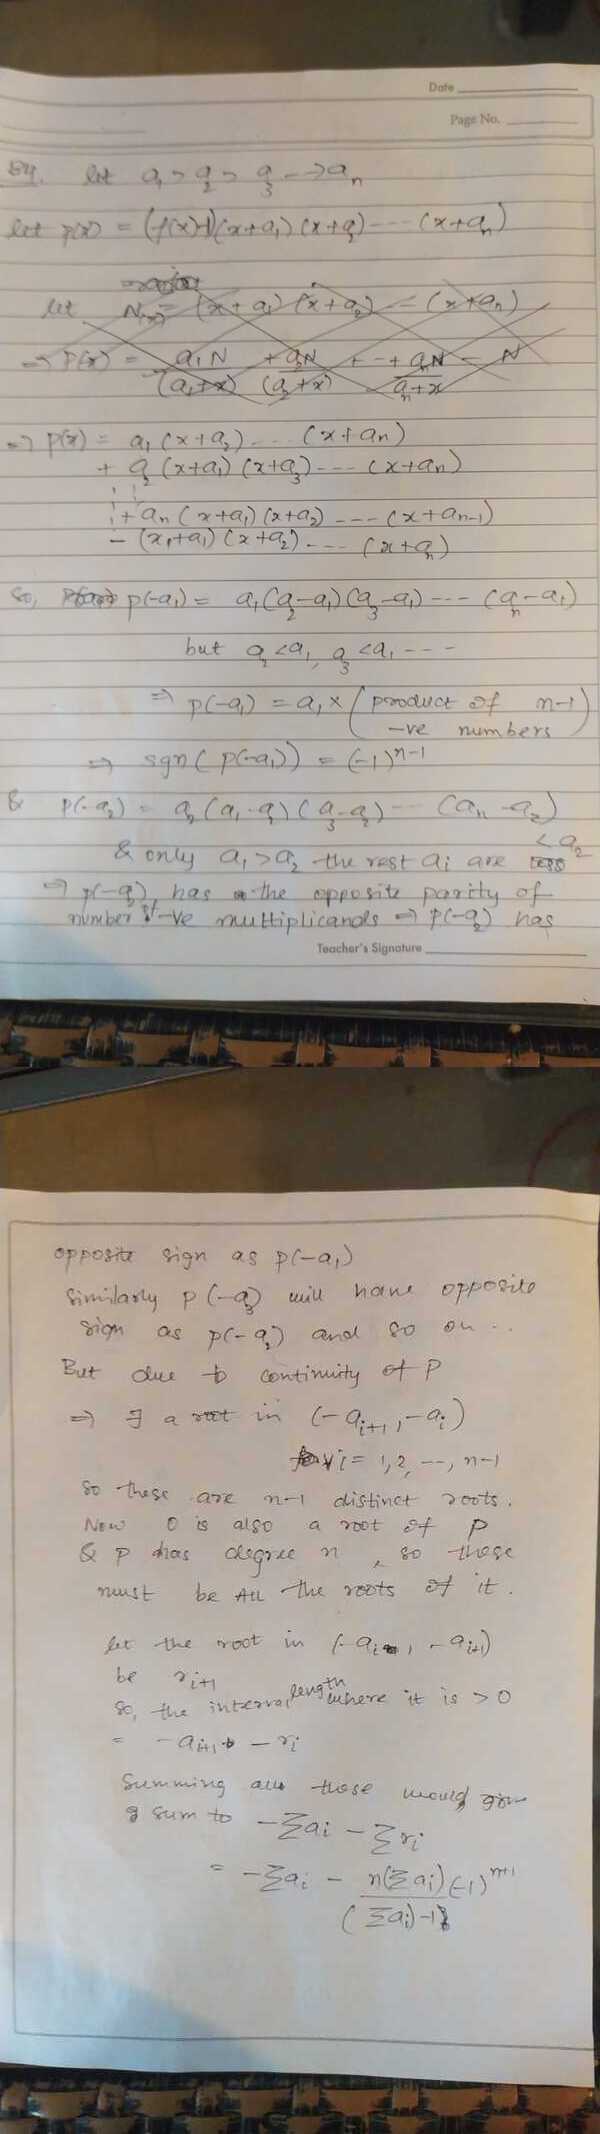 Date
Page No.
let a₁ > a₂ > a₃ --> aₙ
let p(x) = (f(x)-1)(x+a₁)(x+a₂)----(x+aₙ)
let N(x) = (x+a₁)(x+a₂) -- (x+aₙ)
⇒ P(x) = a₁N/(a₁+x) + a₂N/(a₂+x) + -- + aₙN/(aₙ+x) - N
⇒ p(x) = a₁(x+a₂)....(x+aₙ)
+ a₂(x+a₁)(x+a₃)----(x+aₙ)
+ aₙ(x+a₁)(x+a₂)----(x+aₙ₋₁)
- (x₁+a₁)(x+a₂)....(x+aₙ)
So, p(-a₁) = a₁(a₂-a₁)(a₃-a₁)----(aₙ-a₁)
but a₂<a₁, a₃<a₁ ----
⇒ p(-a₁) = a₁ × (product of n-1
-ve numbers)
⇒ sgn(p(-a₁)) = (-1)ⁿ⁻¹
& p(-a₂) = a₂(a₁-a₂)(a₃-a₂)---(aₙ-a₂)
& only a₁>a₂ the rest aᵢ are < a₂
⇒ p(-a₂) has the opposite parity of
number of -ve multiplicands ⇒ p(-a₂) has
Teacher's Signature
opposite sign as p(-a₁)
similarly p(-a₃) will have opposite
sign as p(-a₂) and so on ...
But due to continuity of P
⇒ ∃ a root in (-aᵢ₊₁, -aᵢ)
∀ i = 1,2, --, n-1
So these are n-1 distinct roots.
Now 0 is also a root of P
& P has degree n, so these
must be ALL the roots of it.
let the root in (-aᵢ, -aᵢ₊₁)
be rᵢ₊₁
so, the interval length where it is > 0
= -aᵢ₊₁ - rᵢ
Summing all these would give
sum to -∑aᵢ - ∑rᵢ
= -∑aᵢ - n(∑aᵢ)(-1)ⁿ⁺¹/((∑aᵢ)-1)